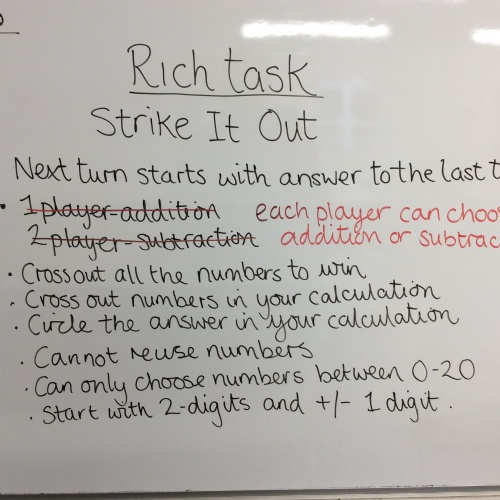 Rich task
Strike It Out
Next turn starts with answer to the last t
• 1 player-addition each player can choos
2 player-subtraction addition or subtrac
• Cross out all the numbers to win
• Cross out numbers in your calculation
• Circle the answer in your calculation
• Cannot reuse numbers
• Can only choose numbers between 0-20
• Start with 2-digits and +/- 1 digit.